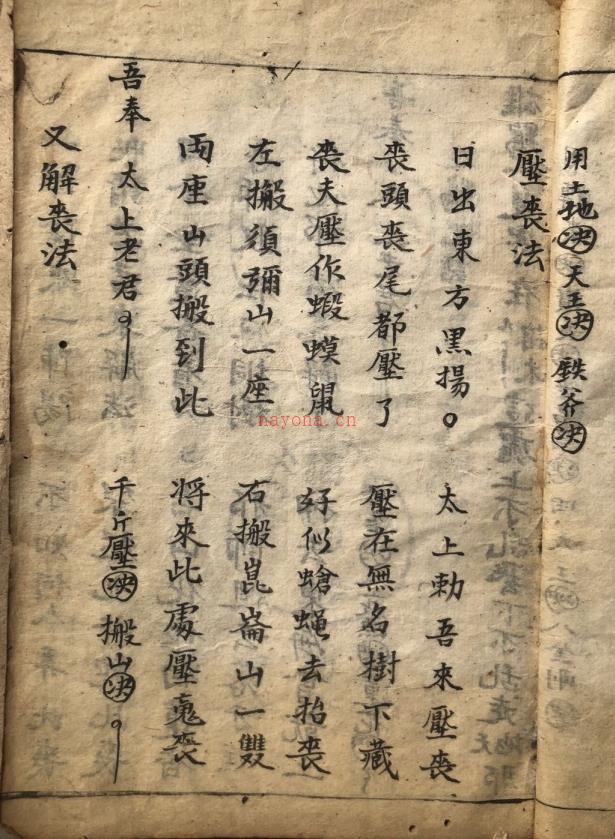 用土地决天王决鉄斧决
壓喪法
日出東方黑揚 太上勅吾來壓喪
喪頭喪尾都壓了 壓在無名樹下藏
喪夫壓作蝦蟆鼠 好似蟾蝇去抬喪
左搬須彌山一座 右搬崑崙山一雙
両座山頭搬到此 将來此處壓鬼喪
吾奉太上老君 千斤壓决搬山决
又解喪法
nayona.cn